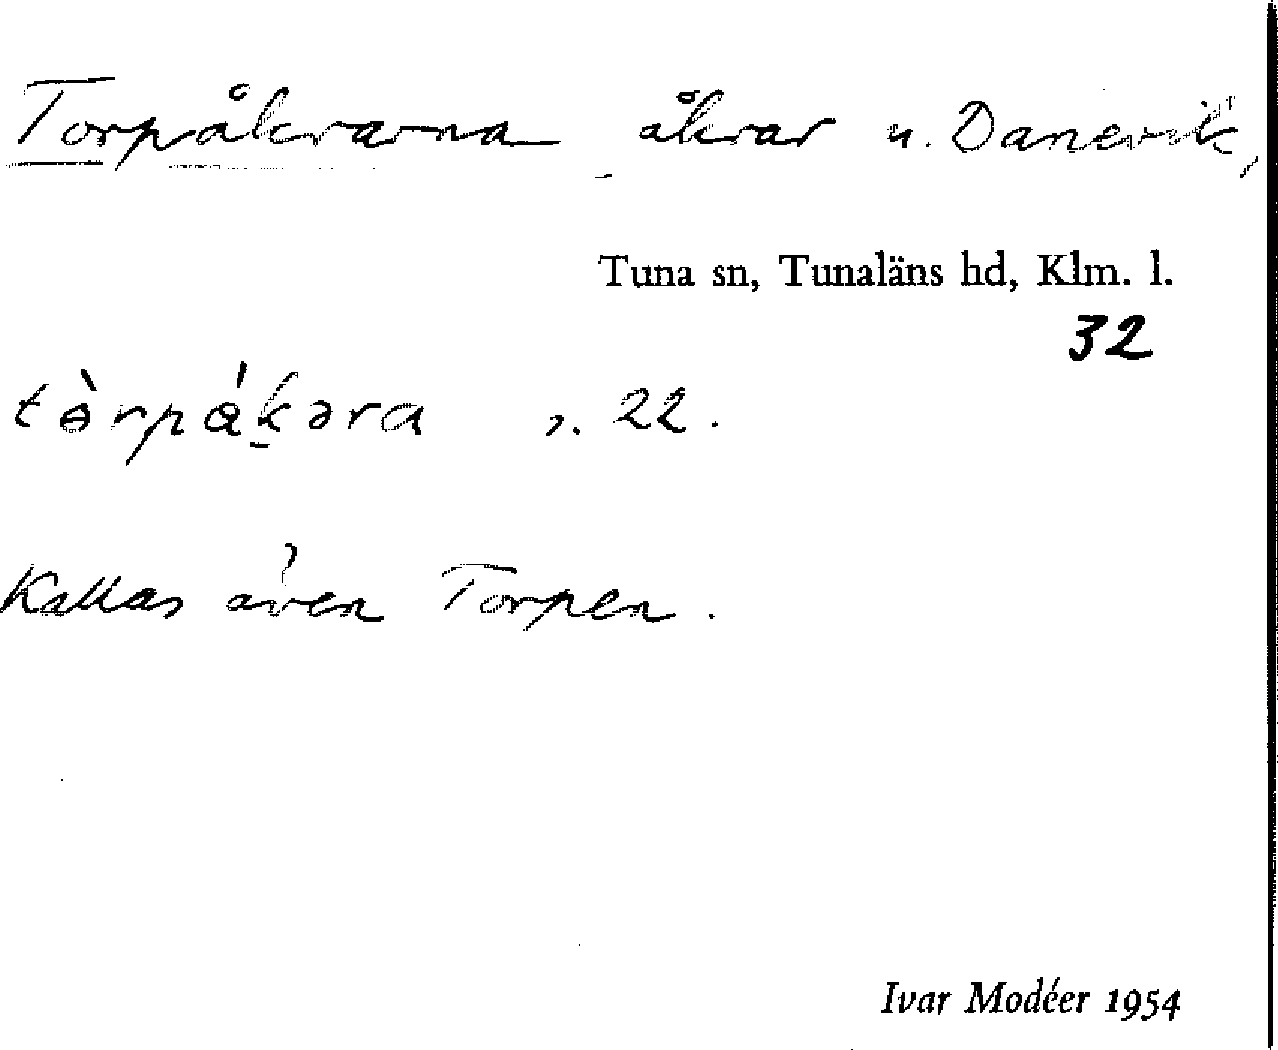 Torpåkrarna åkrar u. Danevik,
Tuna sn, Tunaläns hd, Klm. l.
32
tòrpák̠əra s. 22.
Kallas även Torpen.
Ivar Modéer 1954